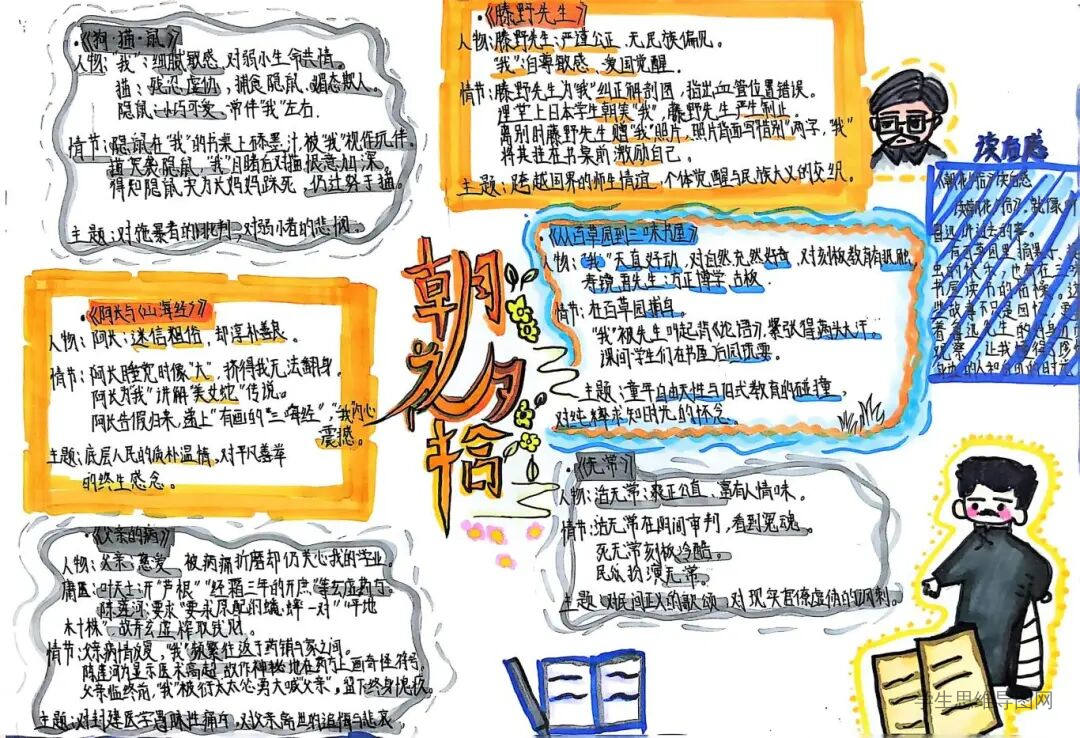 《狗·猫·鼠》
人物:"我":细腻敏感、对弱小生命共情。
猫:残忍虚伪,捕食隐鼠,媚态欺人。
隐鼠:小巧可爱,常伴"我"左右.
情节:隐鼠在"我"的书桌上舔墨汁,被"我"视作玩伴。
猫
隐鼠,"我"目睹后对猫恨意加深。
得知隐鼠实为长妈妈踩死,仍迁努于猫。
主题:对施暴者的批判,对弱小者的悲悯.
《阿长与《山海经》》
人物:阿长:迷信粗俗,却淳朴善良.
情节:阿长睡觉时像"大",挤得我无法翻身。
阿长为"我"讲解"美女蛇"传说。
阿长告假归来,递上"有画的"三哼经","我"内心
震撼。
主题:底层人民的质朴温情,对平凡善举
的终生感念。
《父亲的病》
人物:父亲:慈爱 被病痛折磨却仍关心我的学业。
庸医:叶天士:开"芦根""经霜三年的
"等玄虚药方
陈莲河:要求"要求原配的蟋蟀一对""平地
木十株" 故弄玄虚榨取钱财。
情节:父亲病情加复,"我"频繁往返于药铺与家之间。
陈莲河为显示医术高超,故作神秘地在药方上画奇怪符号。
父亲临终前,"我"被衍太太怂勇大喊"父亲",留下终身愧疚。
主题:对封建医学
痛斥,对父亲离世的追悔与悲哀
朝花夕拾
《滕野先生》
人物:滕野先生:严谨公正、无民族偏见。
"我":自尊敏感、爱国觉醒.
情节:滕野先生为"我"纠正解剖图,指出血管位置错误。
课堂上日本学生朝笑"我",藤野先生严生制止.
离别时藤野先生赠"我"照片,照片背面写"惜别"两字,"我"
将其挂在书桌前激励自己。
主题:跨越国界的师生情谊,个体觉醒与民族大义的交织.
《从百草园到三味书屋》
人物:"我":天直好动,对自然充然好奇,对刻板教育有抵触,
寿镜吾先生:方正博学 古板.
情节:在百草园捕鸟.
"我"被先生叫起背《论语》,紧张得满头大汗.
课间学生们在书屋后园玩耍。
主题:童年自由天性与旧式教育的碰撞,
对纯粹求知时光的怀念
《无常》
人物:活无常:爽正公直、富有人情味。
情节:活无常在阴间审判,看到冤魂。
死无常刻板冷酷。
民众扮演无常。
主题:对民间正义的歌颂,对现实官僚虚伪的讽刺.
读后感
学生思维导图网